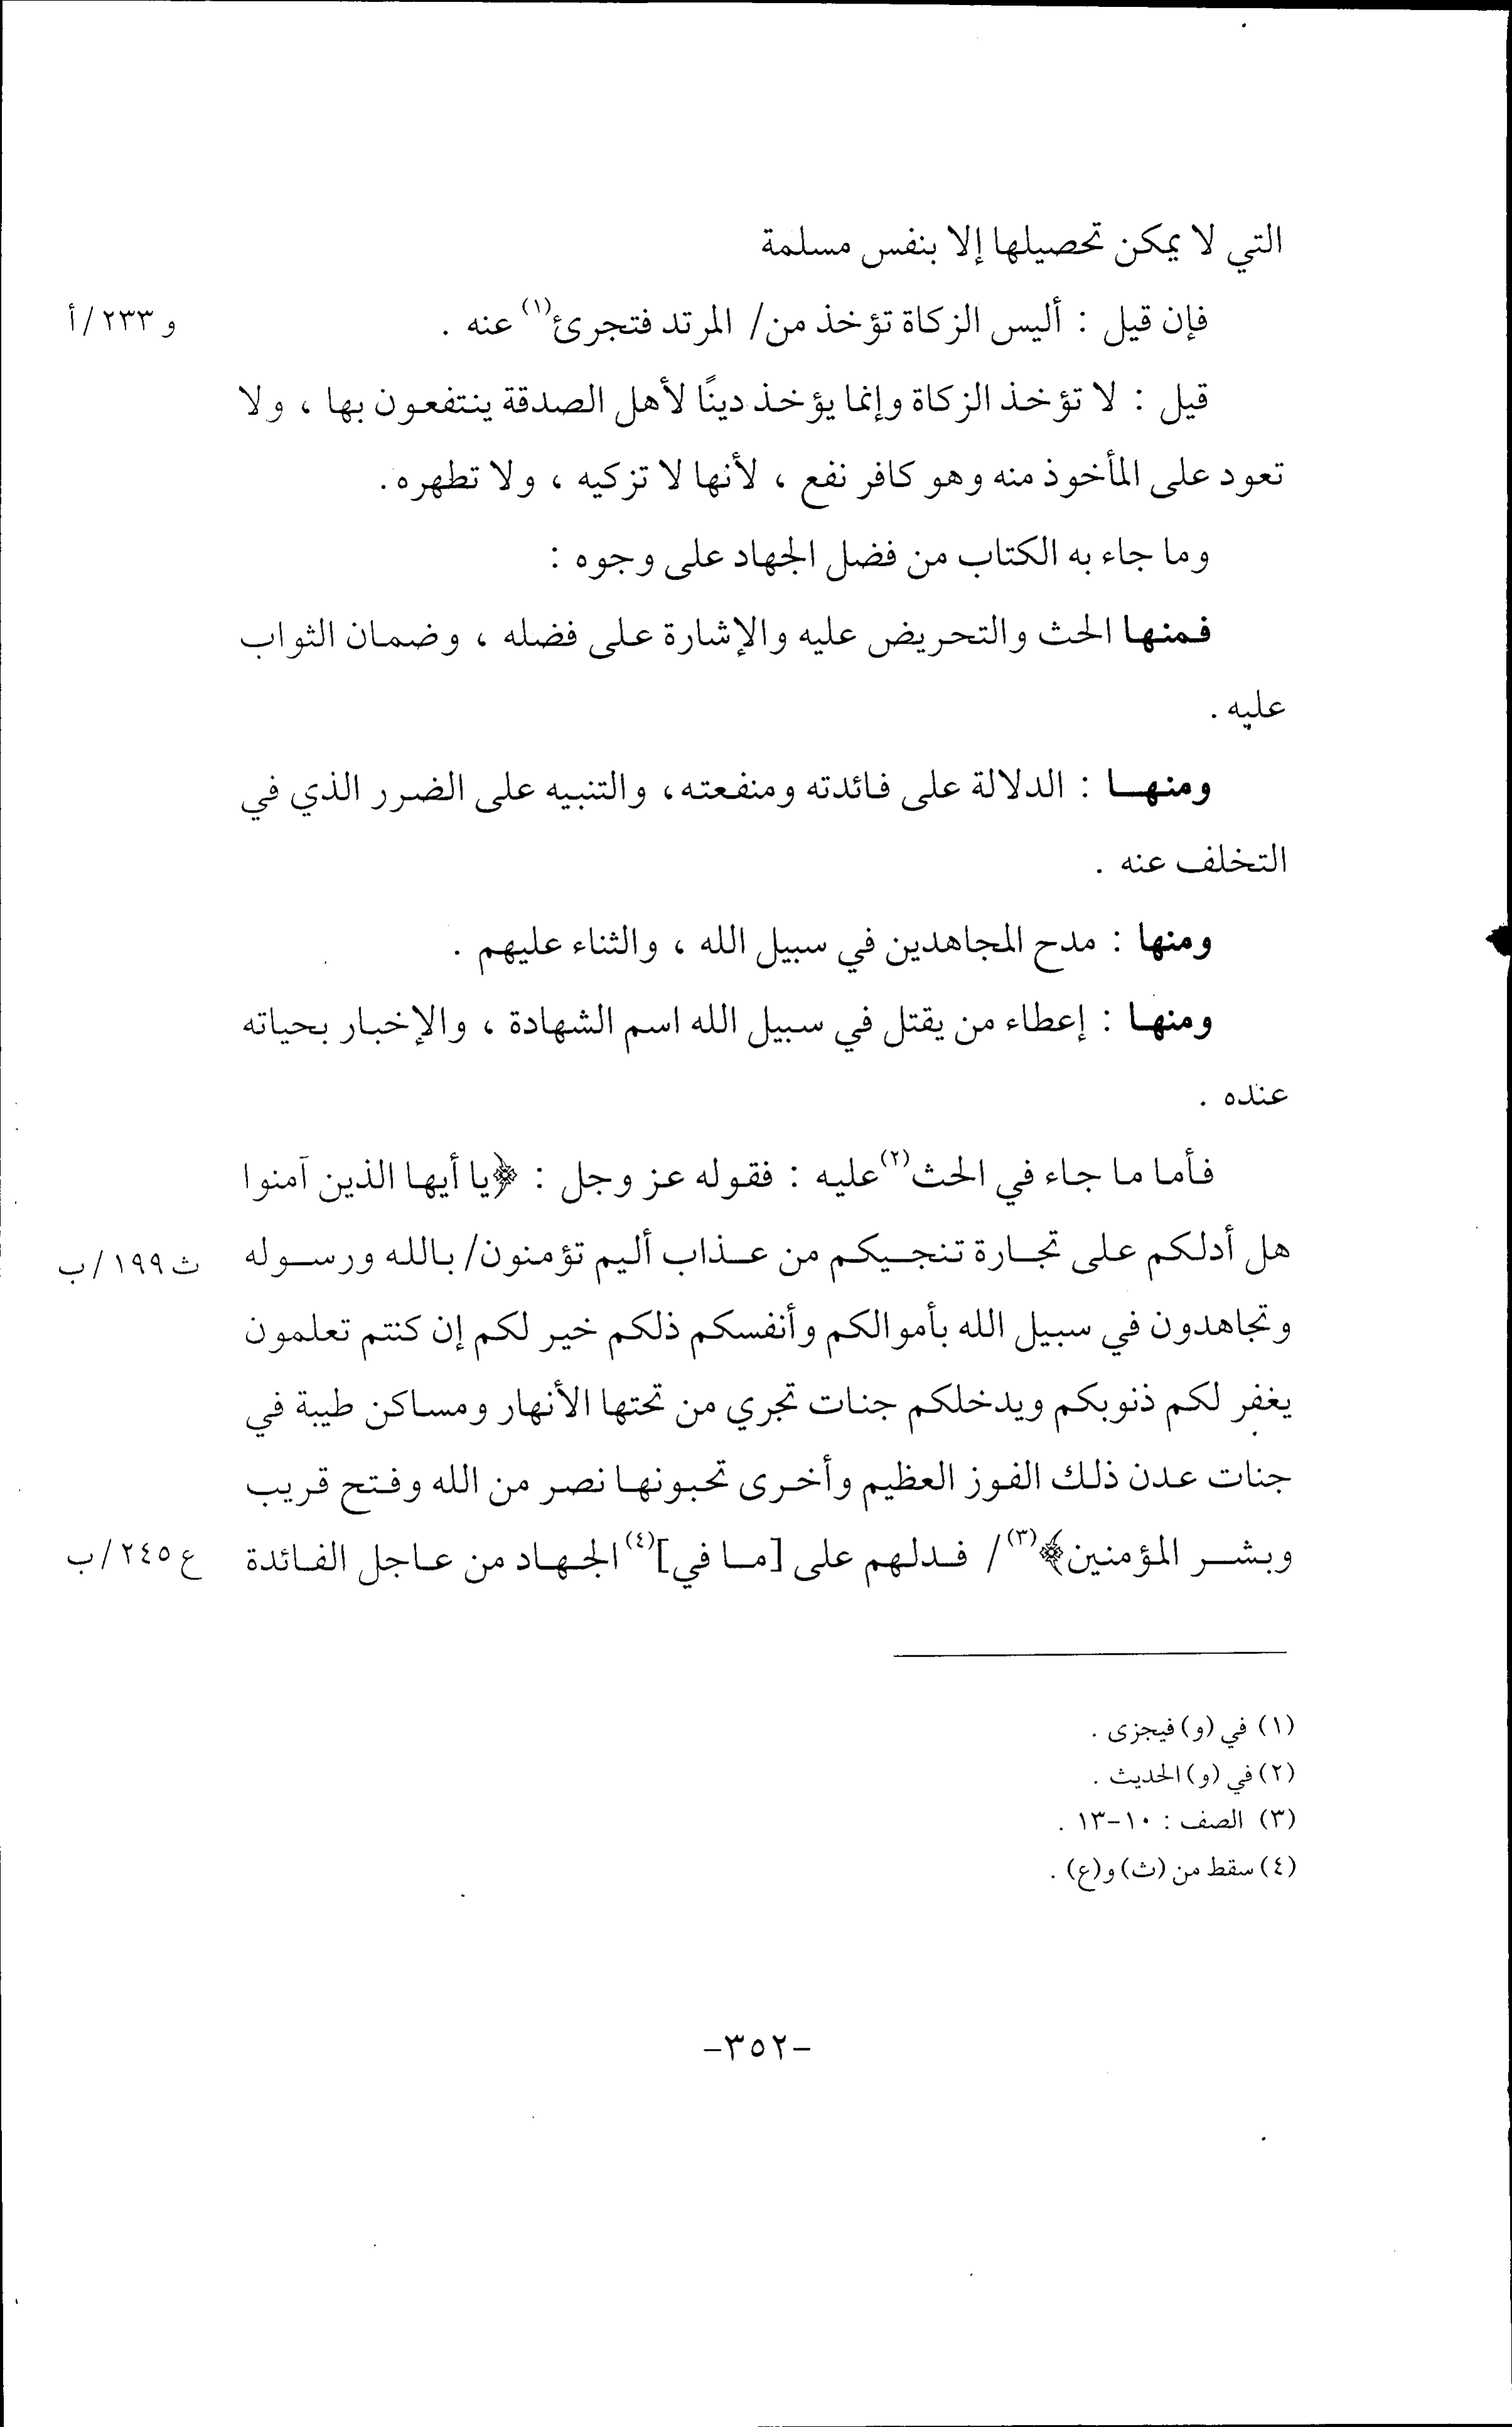 التي لا يمكن تحصيلها إلا بنفس مسلمة
فإن قيل : أليس الزكاة تؤخذ من/ المرتد فتجرئ(١) عنه .
و ٢٣٣/أ
قيل : لا تؤخذ الزكاة وإنما يؤخذ دينًا لأهل الصدقة ينتفعون بها ، ولا
تعود على المأخوذ منه وهو كافر نفع ، لأنها لا تزكيه ، ولا تطهره.
وما جاء به الكتاب من فضل الجهاد على وجوه :
فمنها الحث والتحريض عليه والإشارة على فضله ، وضمان الثواب
عليه .
ومنها : الدلالة على فائدته ومنفعته، والتنبيه على الضرر الذي في
التخلف عنه .
ومنها : مدح المجاهدين في سبيل الله ، والثناء عليهم .
ومنها : إعطاء من يقتل في سبيل الله اسم الشهادة ، والإخبار بحياته
عنده .
فأما ما جاء في الحث(٢) عليه : فقوله عز وجل : ﴿يا أيها الذين آمنوا
هل أدلكم على تجارة تنجيكم من عذاب أليم تؤمنون/ بالله ورسوله
ث ١٩٩/ب
وتجاهدون في سبيل الله بأموالكم وأنفسكم ذلكم خير لكم إن كنتم تعلمون
يغفر لكم ذنوبكم ويدخلكم جنات تجري من تحتها الأنهار ومساكن طيبة في
جنات عدن ذلك الفوز العظيم وأخرى تحبونها نصر من الله وفتح قريب
وبشر المؤمنين﴾(٣) / فدلهم على [ما في](٤) الجهاد من عاجل الفائدة
ع ٢٤٥/ب
(١) في (و) فيجزى .
(٢) في (و) الحديث .
(٣) الصف : ١٠-١٣ .
(٤) سقط من (ث) و(ع) .
-٣٥٢-